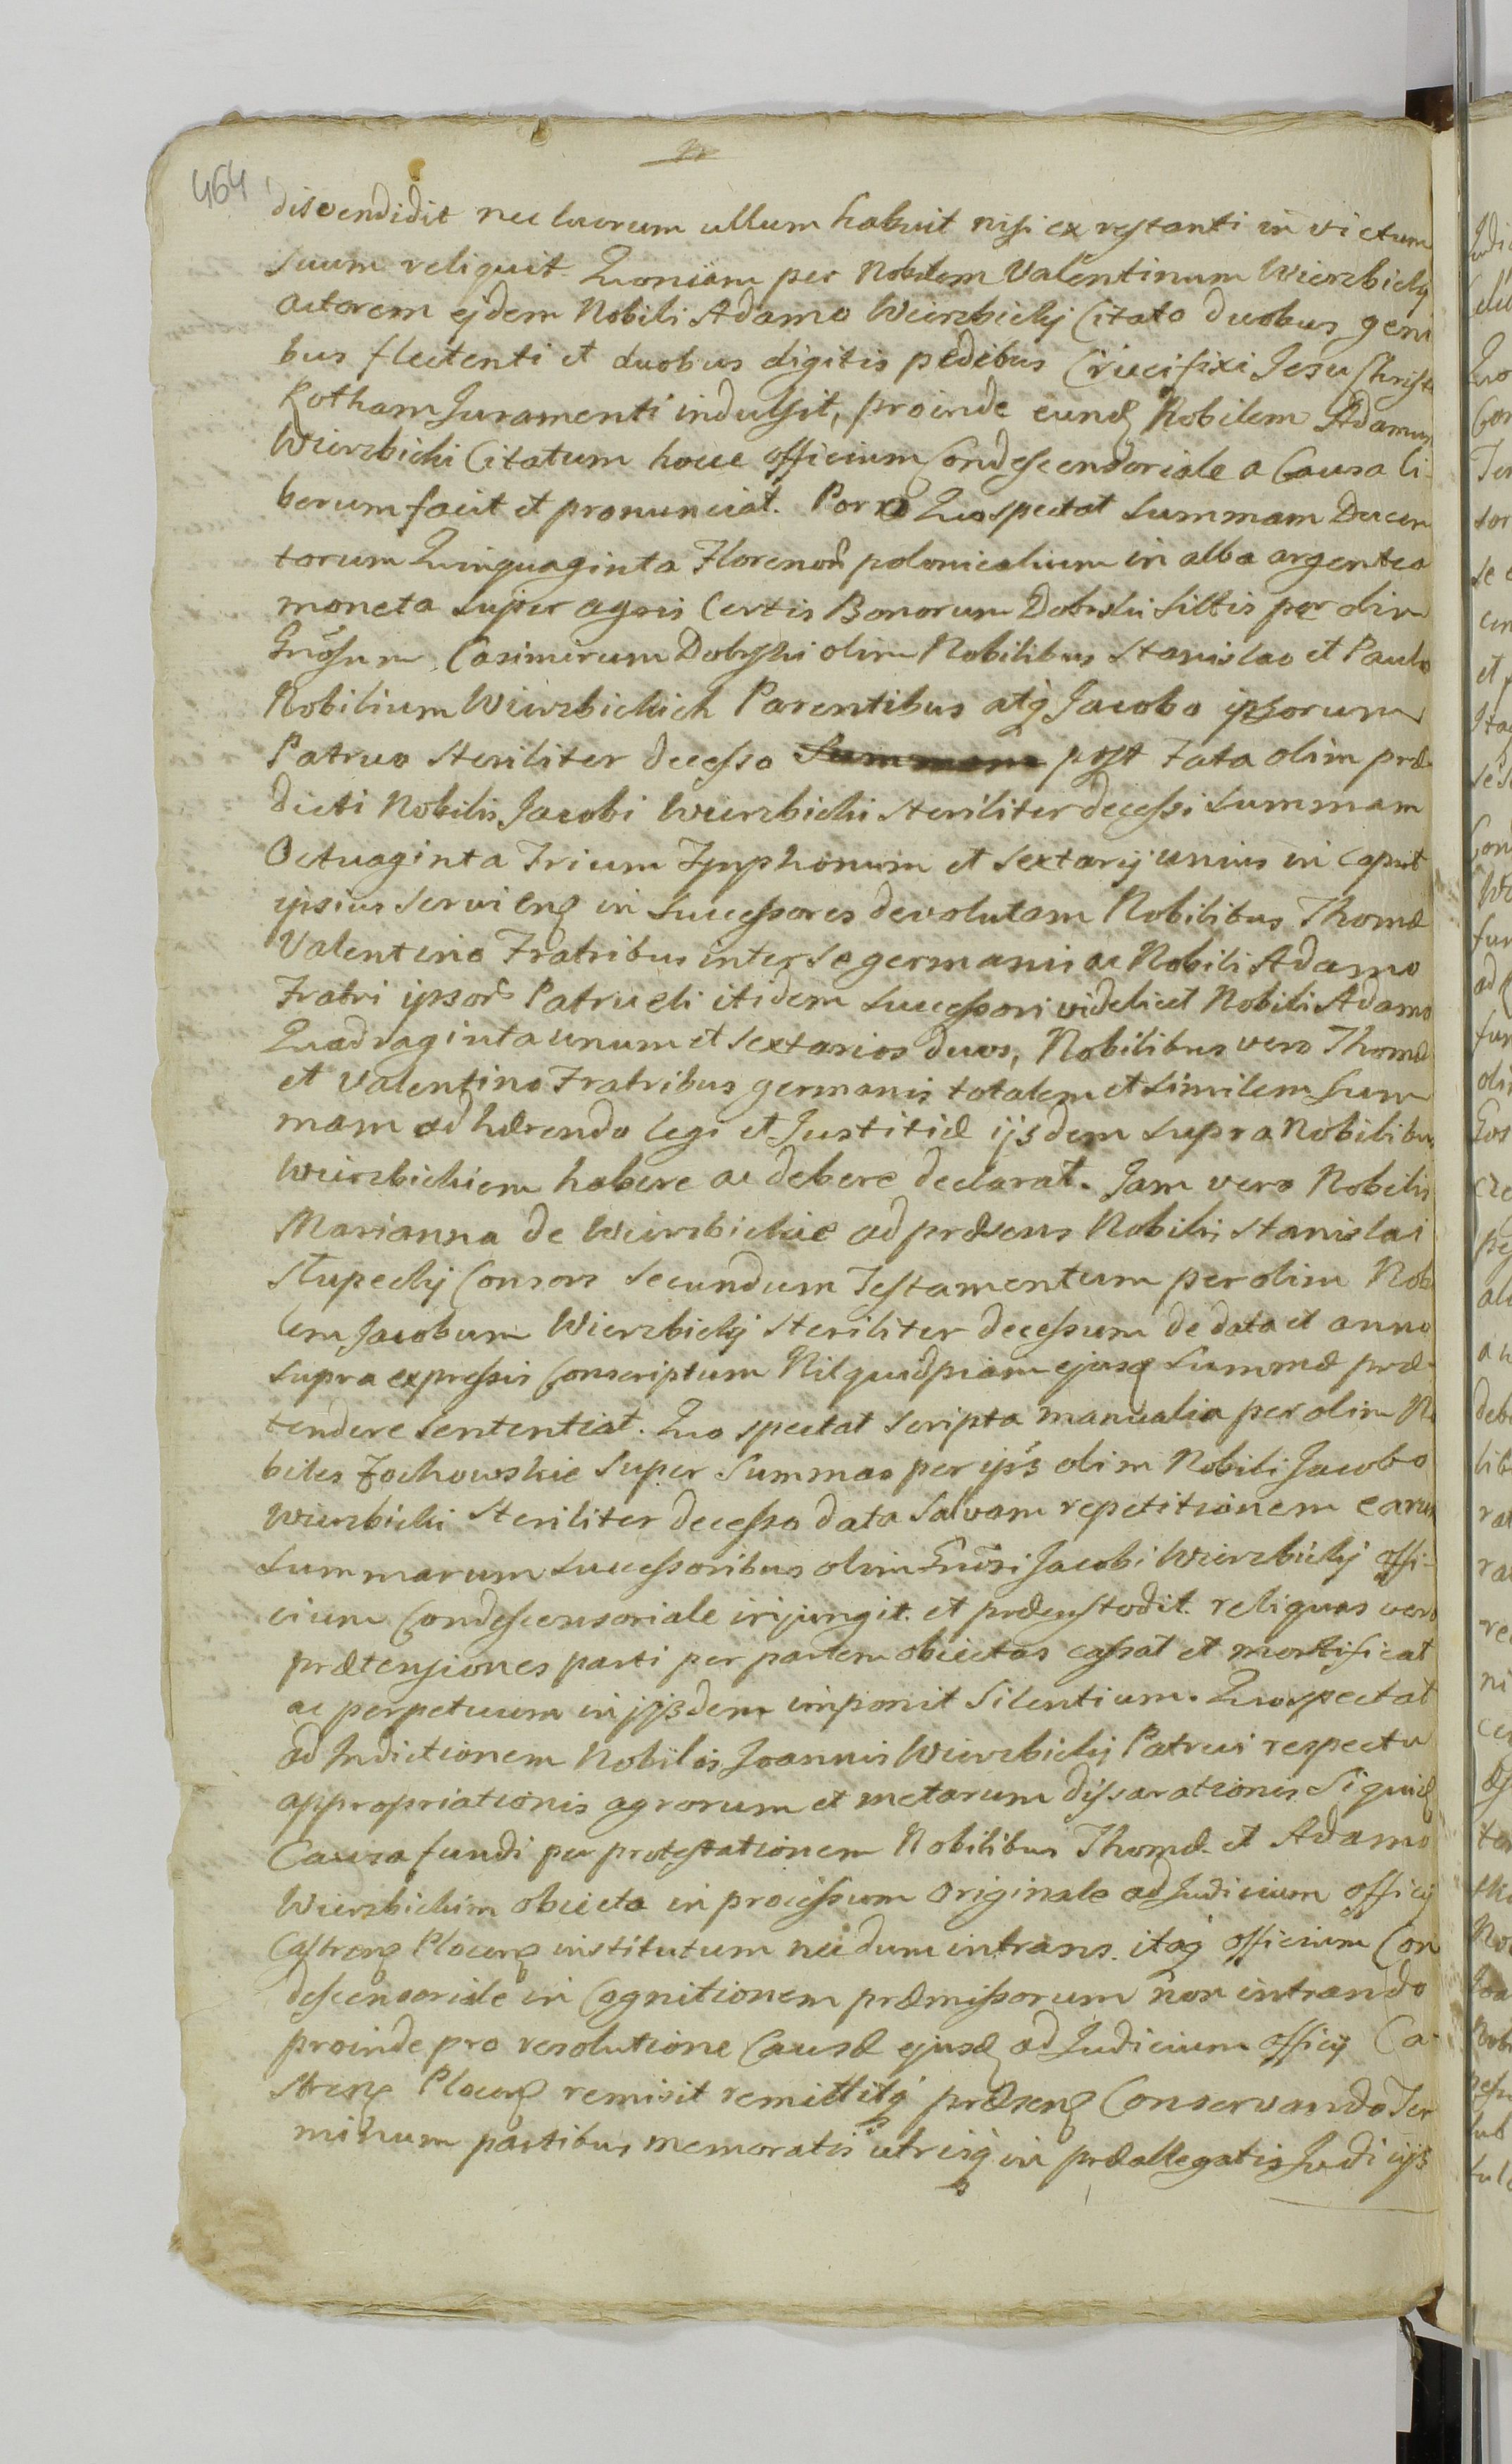 464
disvendidit nec lucrum ullum habuit nisi ex restanti in victum
suum reliquit. Quoniam per Nobilem Valentinum Wierzbicky
actorem ejdem Nobili Adamo Wierzbickij Citato duobus geni
bus flectenti et duobus digitis pedibus Crucifixi Jesu Christi
Rotham Juramenti indulsit, proinde eundq Nobilem Adamum
Wierzbicki Citatum hocce officium Condescensoriale a Causa li-
berum facit et pronunciat. Porro Quo spectat Summam Ducen
torum Quinquaginta Florenor polonicalium in alba argentea
moneta super agris Certis Bonorum Dobrski Sittis per olim
Gnosum Casimirum Dobrski olim Nobilibus Stanislao et Paulo
Nobilium Wierzbickich Parentibus atq Jacobo ipsorum
Patruo steriliter decesso post Fata olim præ
dicti Nobilis Jacobi Wierzbicki steriliter decessi Summam
Octuaginta Trium Tynphonum et Sextarij unius in Caput
ipsius servienq in Successores devolutam Nobilibus Thomæ
Valentino Fratribus inter se germanis ac Nobili Adamo
Fratri ipsor Patrueli itidem Successori videlicet Nobili Adamo
Quadraginta unum et Sextarios duos, Nobilibus vero Thomæ
et Valentino Fratribus germanis totalem et similem Sum
mam adhærendo legi et Justitiæ ijsdem supra Nobilibus
Wierzbickiem habere ac debere declarat. Jam vero Nobilis
Marianna de Wierzbickie ad præsens Nobilis Stanislai
Stupecky Consors secundum Testamentum per olim Nobi
lem Jacobum Wierzbickij steriliter decessum de data et anno
supra expressis Conscriptum Nil quidpiam ejusq Summæ præ-
tendere sententiat. Quo spectat scripta manualia per olim No
biles Zochowskie super Summas per ips olim Nobili Jacobo
Wierzbicki steriliter decesso data salvam repetitionem earum
Summarum Successoribus olim Gnosi Jacobi Wierzbickij offi-
cium Condescensoriale injungit et præcustodit. reliquas vero
prætensiones parti per partem obiectas cassat et mortificat
ac perpetuum in ijsdem imponit Silentium. Quo spectat
ad Indictionem Nobilis Joannis Wierzbickij Patrui respectu
appropriationis agrorum et metarum dissarationis Siquidq
Causa fundi per protestationem Nobilibus Thomæ et Adamo
Wierzbickim obiecta in processum originale ad Judicium officij
Castrenq Plocenq institutum nec dum intrans. itaq officium Con
descensoriale in Cognitionem præmissorum non intrando
proinde pro resolutione Causæ ejusdq ad Judicium officij Ca-
strenq Plocenq remisit remittitq præsenq Conservando Ter
minum partibus memoratis utrisq in præallegatis Judicijs